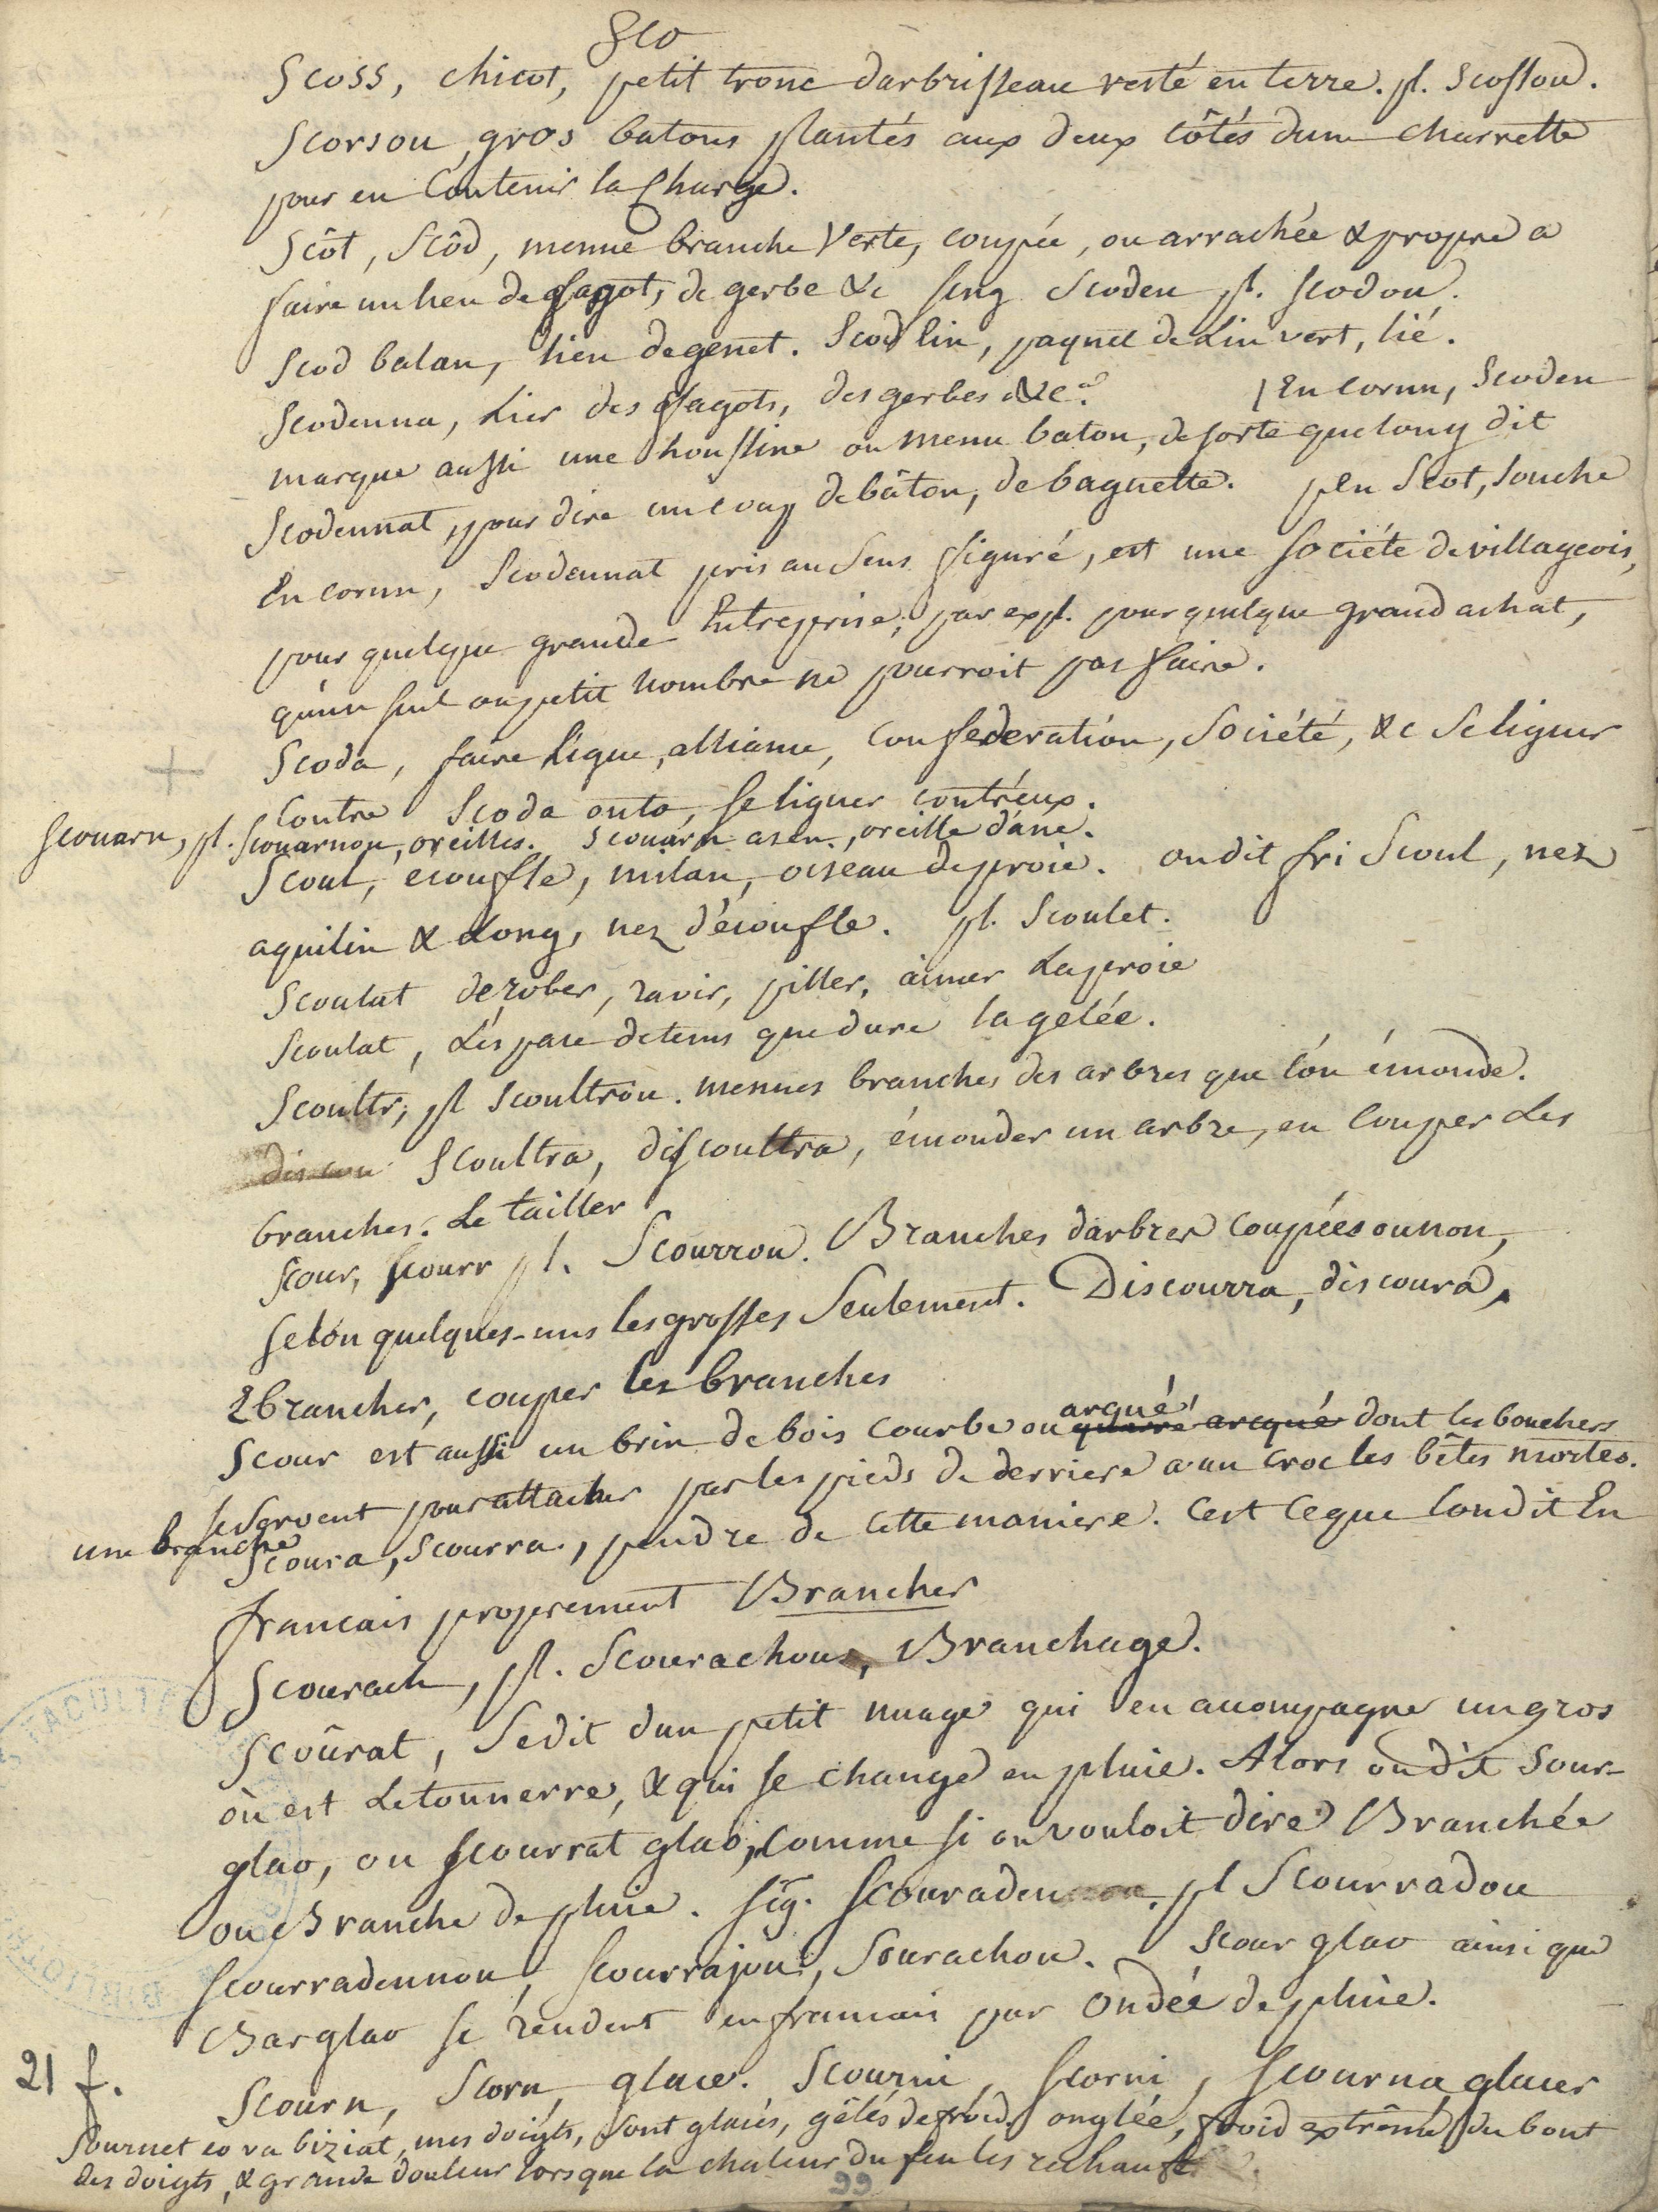 Sco
Scoss, chicot, petit tronc d'arbrisseau resté en terre. pl. scossou.
Scorsou, gros batons plantés aux deux côtés d'une charrette
pour en contenir la Charge.
Scôt, Scôd, menue branche Verte, coupée, ou arrachée & propre a
faire un lien de fagot, de gerbe &c sing scoden pl. scodou.
Scod balan, lien de genet. Scod lin, paquet de Lin vert, lié.
Scodenna, Lier des fagots, des gerbes &ca. / En cornn, Scoden
marque aussi une houssine ou menu baton, de sorte que l'on y dit
Scodennat, pour dire un coup de bâton, de baguette. pen Scot, Souche
En cornn, Scodennat pris au Sens figuré, est une sociéte de villageois,
pour quelque grande Entreprise, par expl. pour quelque grand achat,
qu'un seul ou petit nombre ne pourroit pas faire.
Scoda, faire Ligue, alliance, confederation, Société, &c Se liguer
contre Scoda outo, se liguer contr'eux.
Scouarn, pl. Scouarnou, oreilles. Scouarn asen, oreille d'âne.
Scoul, ecoufle, milan, oiseau de proie. on dit fri Scoul, nez
aquilin & Long, nez d'écoufle. pl. Scoulet.
Scoulat dérober, ravir, piller, aimer La proie
Scoulat, L'éspace de tems que dure la gelée.
Scoultr, pl Scoultrou. menues branches des arbres que l'on émonde.
discou Scoultra, discoultra, émonder un arbre, en couper Les
branches. Le tailler
Scour, Scourr pl. Scourrou. Branches d'arbres coupées ou non,
selon quelques-uns les grosses Seulement. Discourra, discoura,
Ebrancher, couper les branches
Scour est aussi un brin de bois courbe ou arqué dont les bouchers
se servent pour attacher par les pieds de derriere a un croc les bêtes mortes.
une branche
Scoura, scourra, pendre de cette maniere. C'est ce que l'on dit En
francais proprement Brancher
Scourach, pl. Scourachou, Branchage.
Scoûrat, Se dit d'un petit nuage qui en accompagne un gros
où est Le tonnerre, & qui se change en pluie. Alors on dit Scour-
glao, ou scourrat glao, comme si on vouloit dire Branchée
ou Branche de pluie. sig. scouraden pl Scourradou
scourradennou, scourrajou, Scourachou. Scour glao ainsi que
Barglao se rendent en francais par Ondée de pluie.
21 f.
Scourn, Scorn, glace. Scourni, scorni, scourna glacer
Scournet eo va biziat, mes doigts, sont glacés, gêlés de froid. onglée, froid extrême du bout
des doigts, & grande douleur lorsque la chaleur du feu les rechauffe.
99